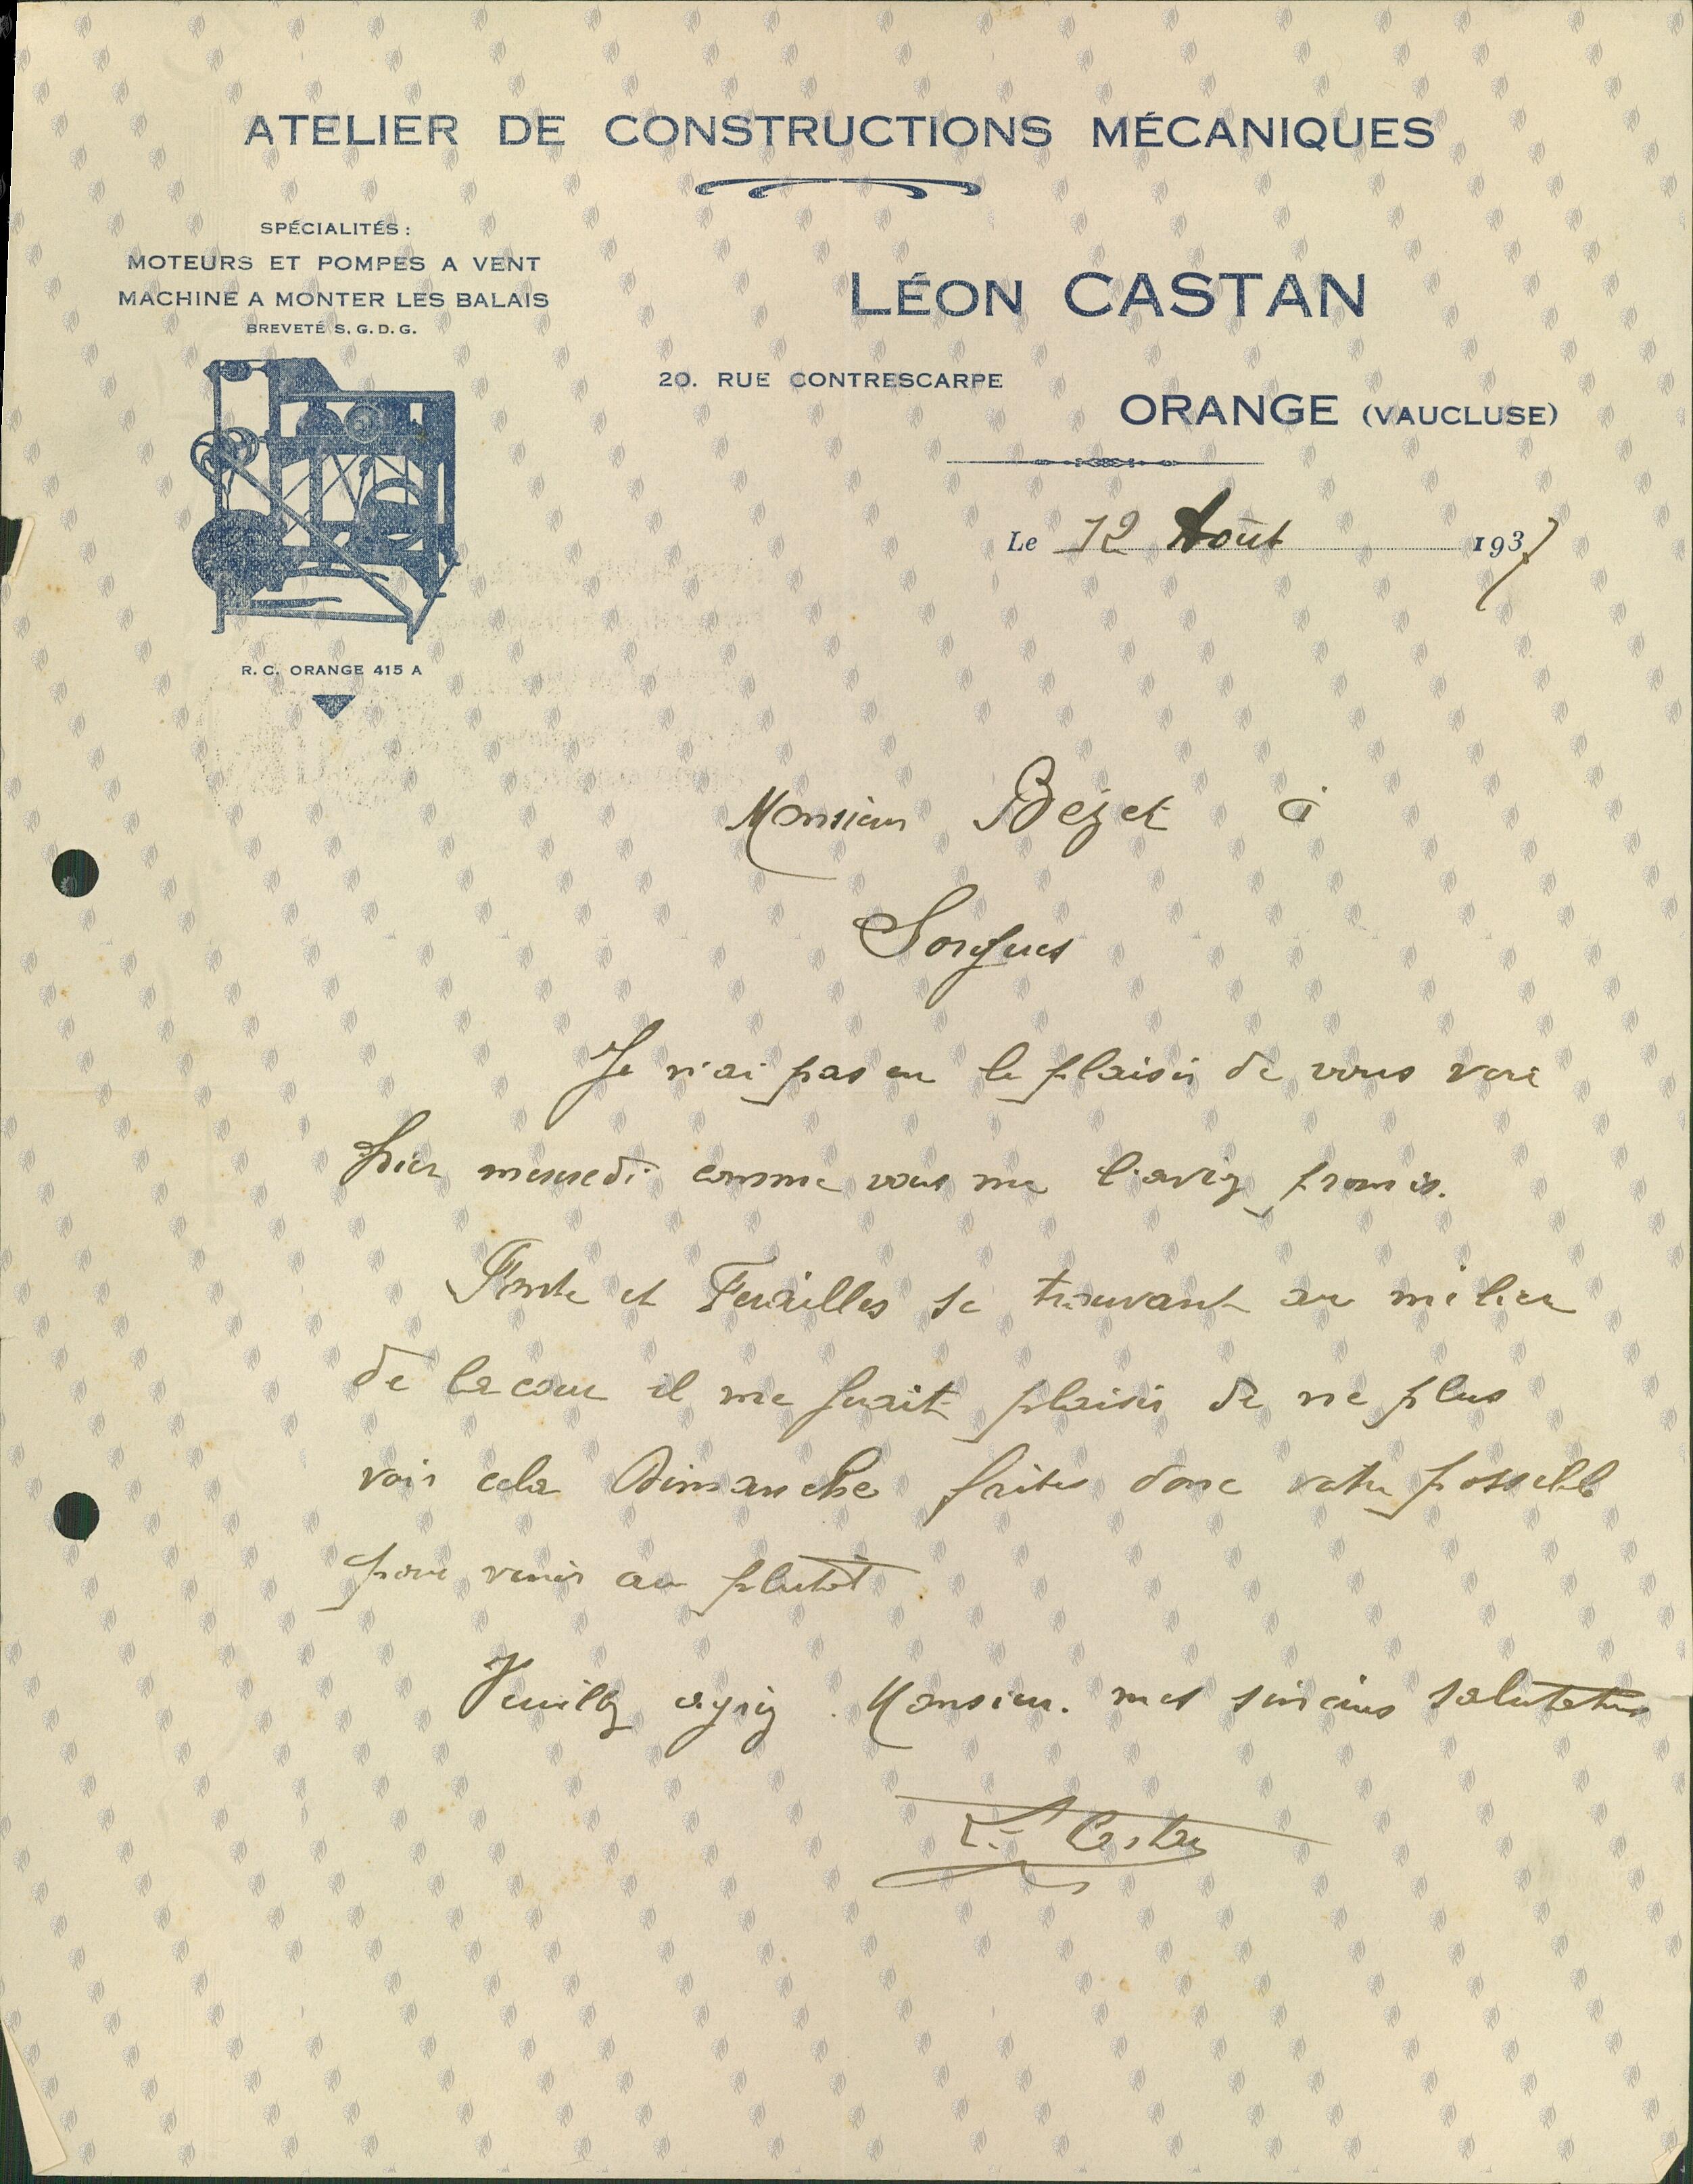 ATELIER DE CONSTRUCTIONS MÉCANIQUES
SPÉCIALITÉS :
MOTEURS ET POMPES A VENT
MACHINE A MONTER LES BALAIS
BREVETÉ S. G. D. G.
R. C. ORANGE 415 A
LÉON CASTAN
20. RUE CONTRESCARPE
ORANGE (VAUCLUSE)
Le 12 Août 1937
Monsieur Bézet à
Sorgues
Je n'ai pas eu le plaisir de vous voir
hier mercredi comme vous me l'aviez promis.
Fonte et Ferailles se trouvant au milieu
de la cour il me ferait plaisir de ne plus
voir cela Dimanche faites donc votre possible
pour venir au plutôt
Veuillez agréez. Monsieur. mes sincères salutations
L. Castan